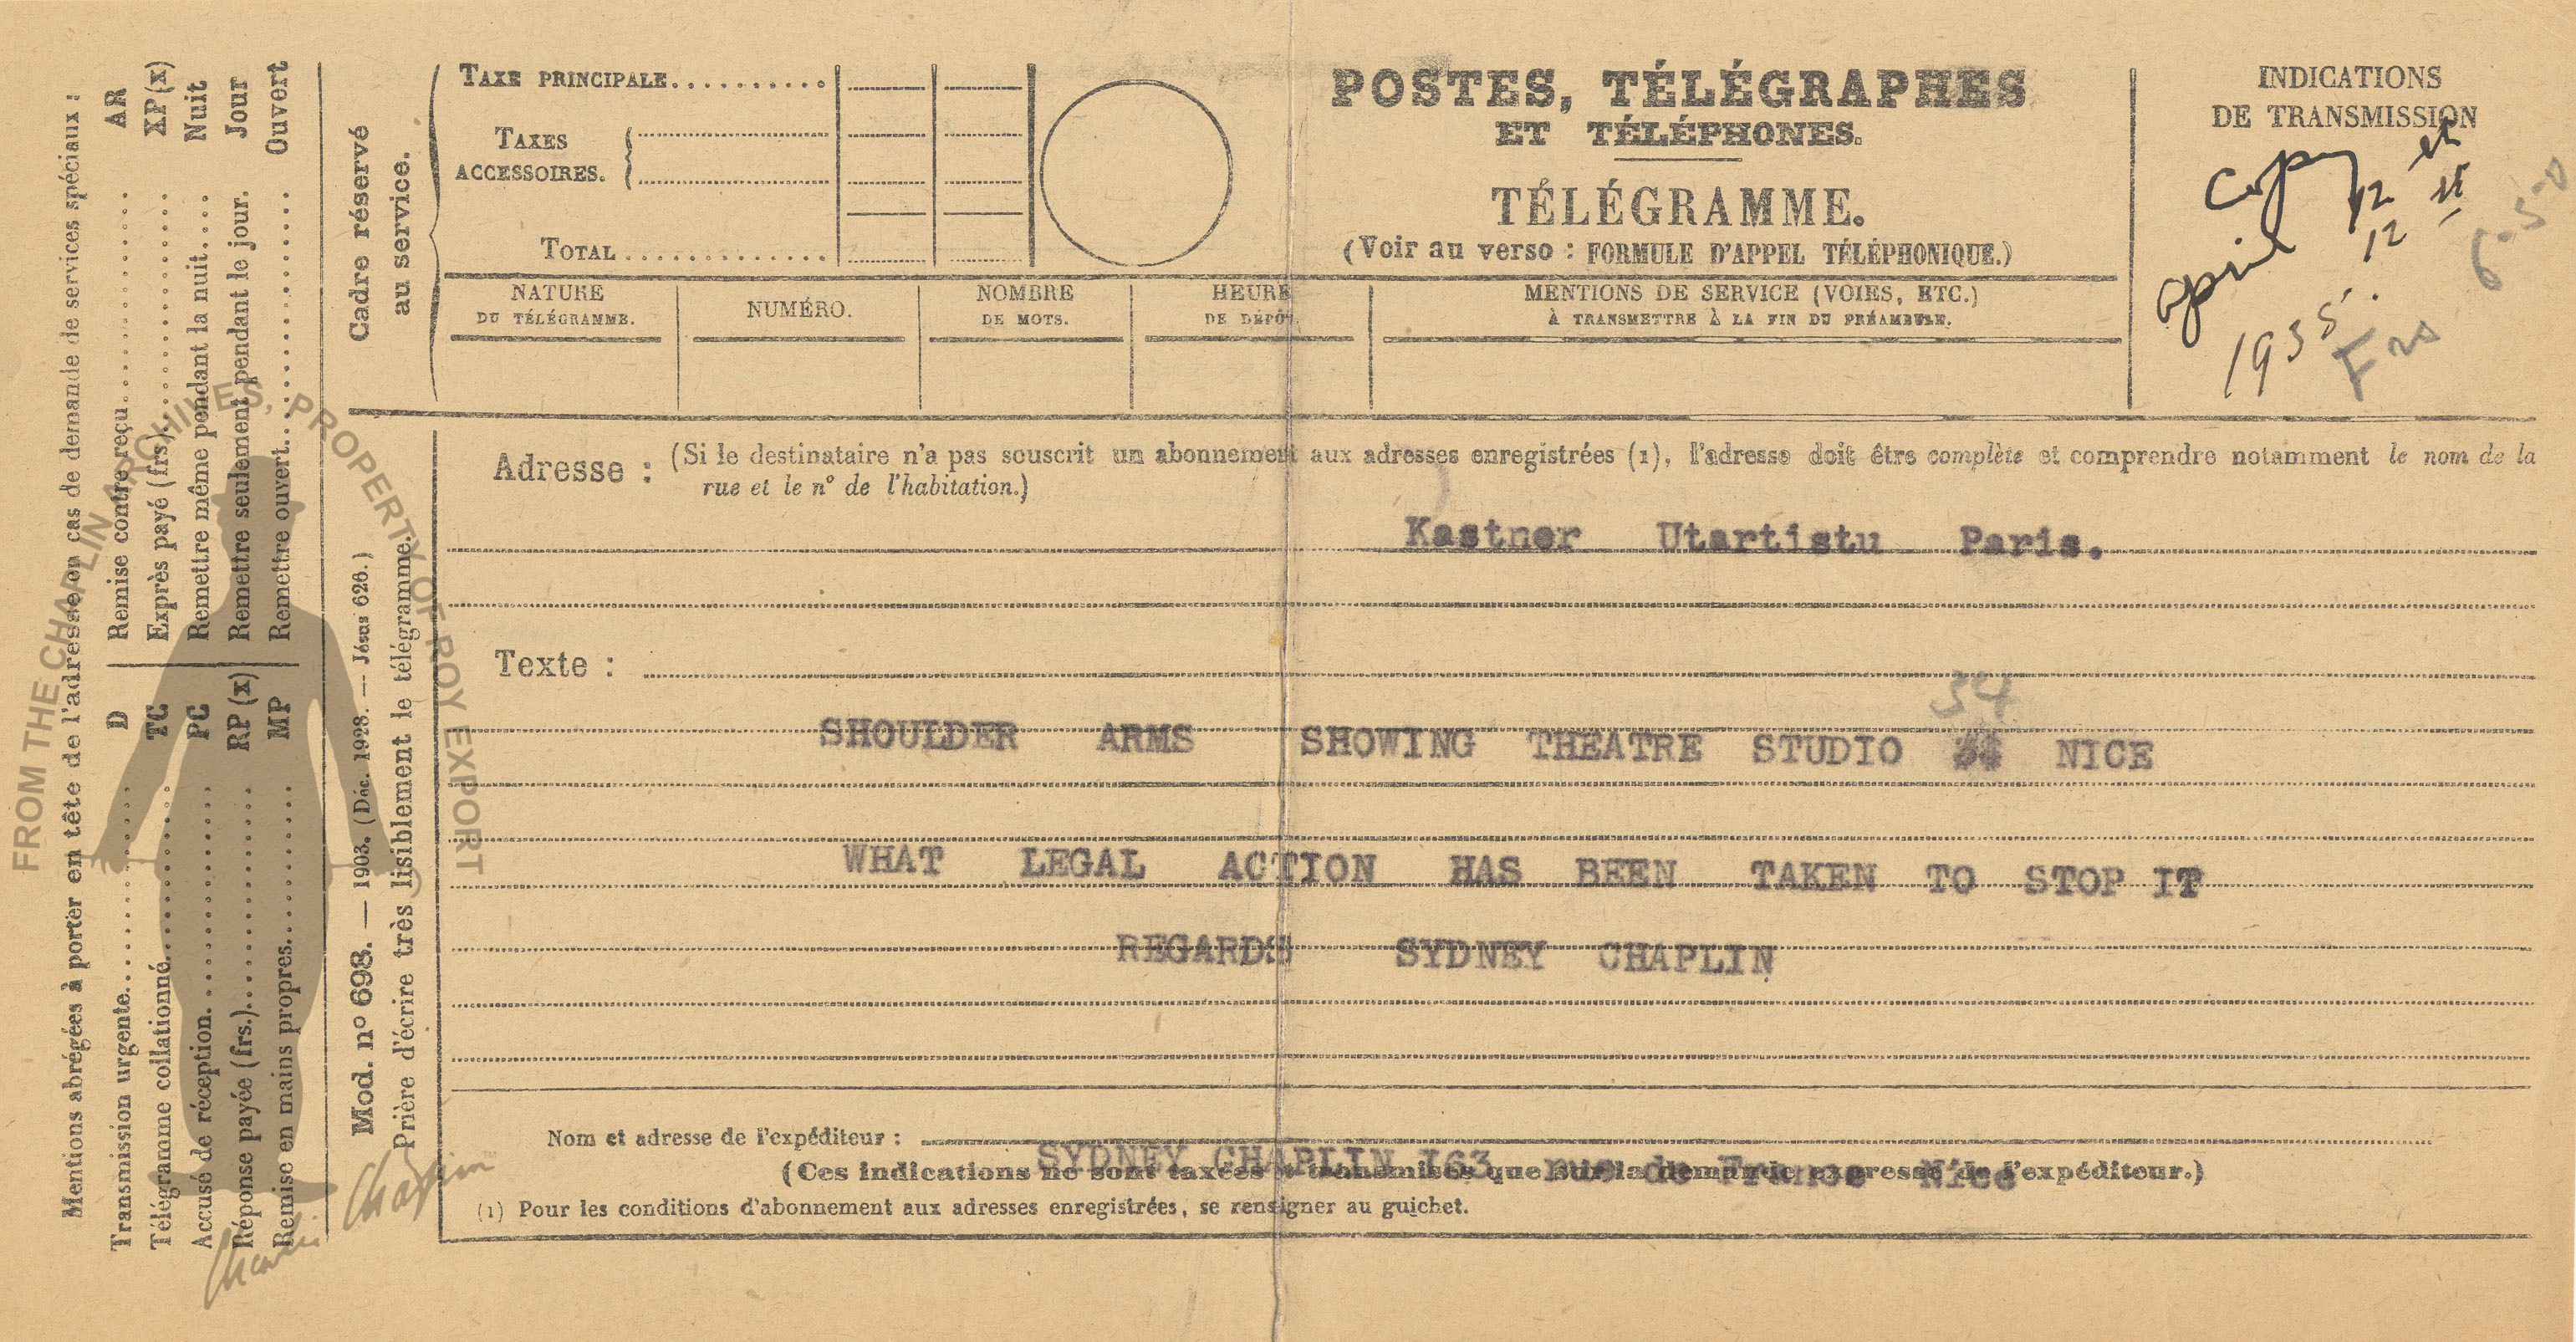 Mentions abrégées à porter en tête de l'adresse en cas de demande de services spéciaux :
D Transmission urgente.
TC Télégramme collationné.
PC Accusé de réception.
RP (x) Réponse payée (frs.).
MP Remise en mains propres.
AR Remise contre reçu.
XP (x) Exprès payé (frs).
Nuit Remettre même pendant la nuit.
Jour Remettre seulement pendant le jour.
Ouvert Remettre ouvert.
Mod. nº 698. — 1903. (Déc. 1928. — Jésus 626.)
Prière d'écrire très lisiblement le télégramme.
Cadre réservé
au service.
TAXE PRINCIPALE
TAXES
ACCESSOIRES.
TOTAL
POSTES, TÉLÉGRAPHES
ET TÉLÉPHONES.
TÉLÉGRAMME.
(Voir au verso : FORMULE D'APPEL TÉLÉPHONIQUE.)
INDICATIONS
DE TRANSMISSION
Copy
april 12
12
1935.
6.50
Frs
NATURE
DU TÉLÉGRAMME.
NUMÉRO.
NOMBRE
DE MOTS.
HEURE
DE DÉPÔT.
MENTIONS DE SERVICE (VOIES, ETC.)
À TRANSMETTRE À LA FIN DU PRÉAMBULE.
Adresse : (Si le destinataire n'a pas souscrit un abonnement aux adresses enregistrées (1), l'adresse doit être complète et comprendre notamment le nom de la
rue et le nº de l'habitation.)
Kastner Utartistu Paris.
Texte :
34
SHOULDER ARMS SHOWING THEATRE STUDIO NICE
WHAT LEGAL ACTION HAS BEEN TAKEN TO STOP IT
REGARDS SYDNEY CHAPLIN
Nom et adresse de l'expéditeur :
SYDNEY CHAPLIN I63 rue de France Nice
(Ces indications ne sont taxées et transmises que sur la demande expresse de l'expéditeur.)
(1) Pour les conditions d'abonnement aux adresses enregistrées, se renseigner au guichet.
FROM THE CHAPLIN ARCHIVES, PROPERTY OF ROY EXPORT
Charlie Chaplin ™